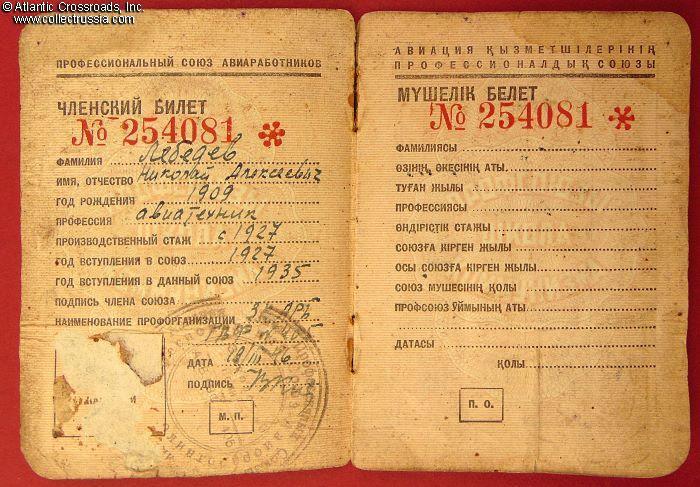 © Atlantic Crossroads, Inc.
www.collectrussia.com
ПРОФЕССИОНАЛЬНЫЙ СОЮЗ АВИАРАБОТНИКОВ
ЧЛЕНСКИЙ БИЛЕТ
№ 254081 *
ФАМИЛИЯ Лебедев
ИМЯ, ОТЧЕСТВО Николай Алексеевич
ГОД РОЖДЕНИЯ 1909
ПРОФЕССИЯ авиатехник
ПРОИЗВОДСТВЕННЫЙ СТАЖ с 1927
ГОД ВСТУПЛЕНИЯ В СОЮЗ 1927
ГОД ВСТУПЛЕНИЯ В ДАННЫЙ СОЮЗ 1935
ПОДПИСЬ ЧЛЕНА СОЮЗА
НАИМЕНОВАНИЕ ПРОФОРГАНИЗАЦИИ
ДАТА
ПОДПИСЬ
М. П.
АВИАЦИЯ ҚЫЗМЕТШІЛЕРІНІҢ
ПРОФЕССИОНАЛДЫҚ СОЮЗЫ
МҮШЕЛІК БЕЛЕТ
№ 254081 *
ФАМИЛИЯСЫ
ӨЗІНІҢ, ӘКЕСІНІҢ АТЫ
ТУҒАН ЖЫЛЫ
ПРОФЕССИЯСЫ
ӨНДІРІСТІК СТАЖЫ
СОЮЗҒА КІРГЕН ЖЫЛЫ
ОСЫ СОЮЗҒА КІРГЕН ЖЫЛЫ
СОЮЗ МҮШЕСІНІҢ ҚОЛЫ
ПРОФСОЮЗ ҰЙЫМЫНЫҢ АТЫ
ДАТАСЫ
ҚОЛЫ
П. О.